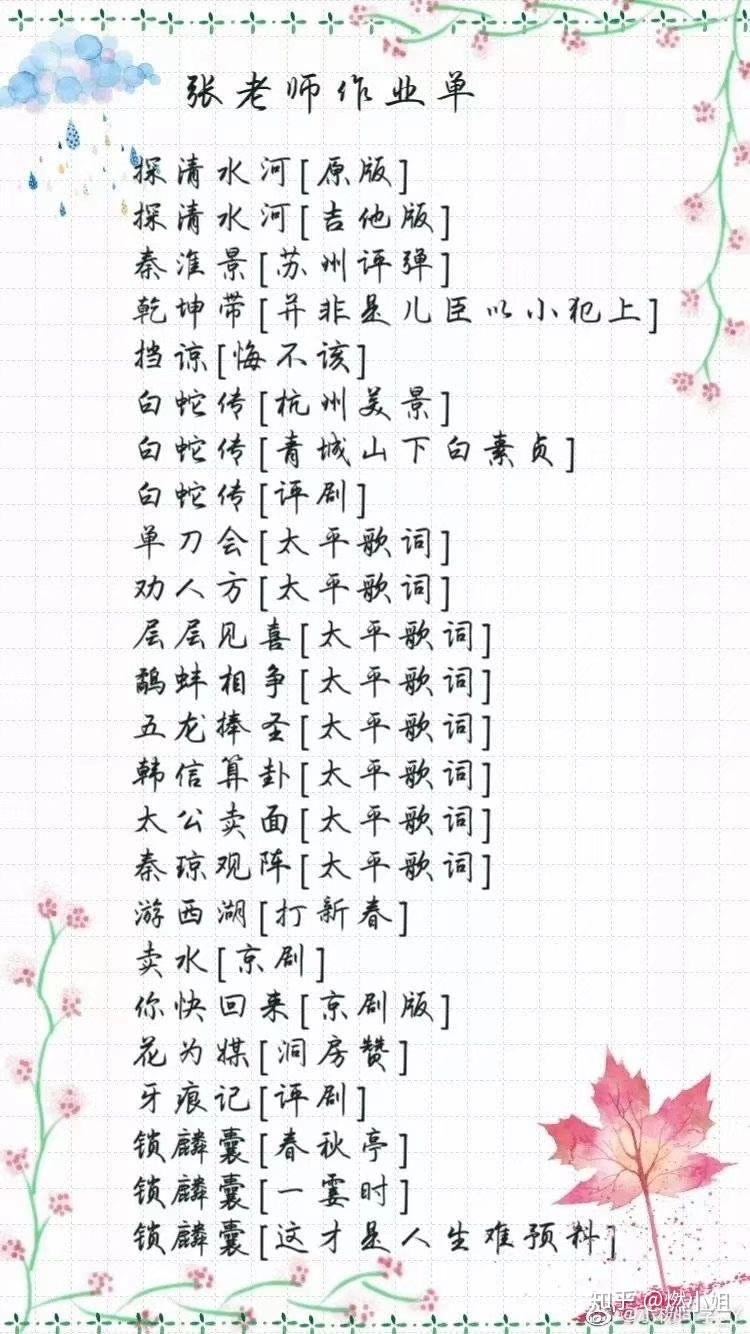 张老师作业单
探清水河[原版]
探清水河[吉他版]
秦淮景[苏州评弹]
乾坤带[并非是儿臣以小犯上]
挡谅[悔不该]
白蛇传[杭州美景]
白蛇传[青城山下白素贞]
白蛇传[评剧]
单刀会[太平歌词]
劝人方[太平歌词]
层层见喜[太平歌词]
鹬蚌相争[太平歌词]
五龙捧圣[太平歌词]
韩信算卦[太平歌词]
太公卖面[太平歌词]
秦琼观阵[太平歌词]
游西湖[打新春]
卖水[京剧]
你快回来[京剧版]
花为媒[洞房赞]
牙痕记[评剧]
锁麟囊[春秋亭]
锁麟囊[一霎时]
锁麟囊[这才是人生难预料]
知乎 @燃小姐